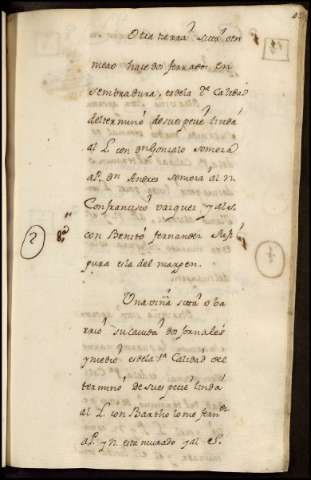 Otra tierra sita den
meao haze dos ferrados en
sembradura, es de la 2ª Calidad
del termino de sues peue linda
al L. con dn Gonzalo somoza
al P. dn Andres somoza al N.
Con francisco vazquez y al S.
con Benito fernandez Su fi
gura es la del margen.
2
Una viña sita o ba
rrio su cauida dos jornales
y medio es de la 1ª Calidad del
termino de sues peue linda
al L. con Bartholome fernz
al P. y N. esta murado y al S.